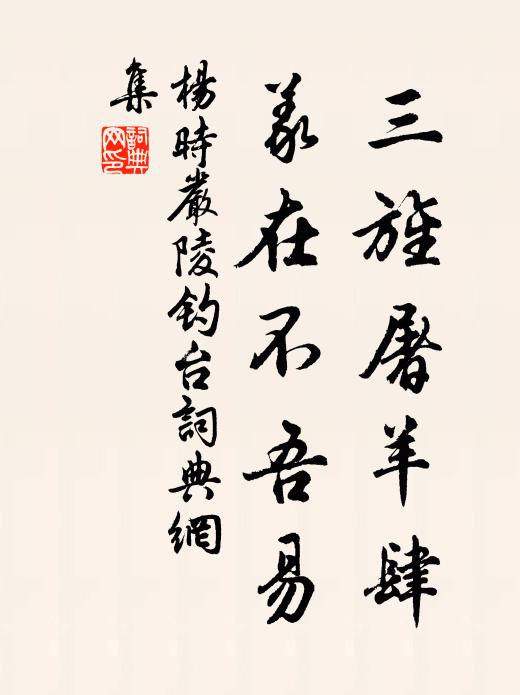 三旌屠羊肆
義在不吾易
楊時嚴陵釣台詞典網
集
詞典
网印